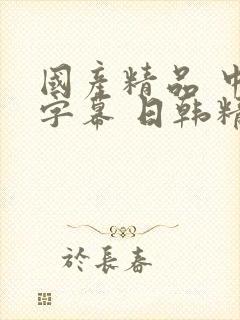 國產精品 中
字幕 日韩精
於長春